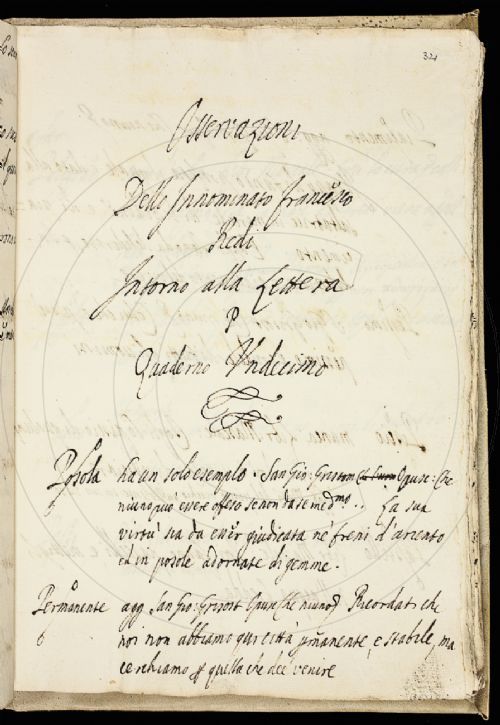 32
Osservazioni
Dello Innominato Francesco
Redi
Intorno alla Lettera
P
Quaderno Undecimo
Posola ha un solo esempio. San Gio: Grisostom Opusc: Che
niuno può essere offeso se non da se medmo.. La sua
virtù sia da esser giudicata nè freni d'ariento
ed in posole adornate di gemme.
Permanente agg San Gio: Grisost Opusc Che niuno Ricordati che
noi non abbiamo qui città pmanente, e stabile, ma
cerchiamo p quella che dee venire